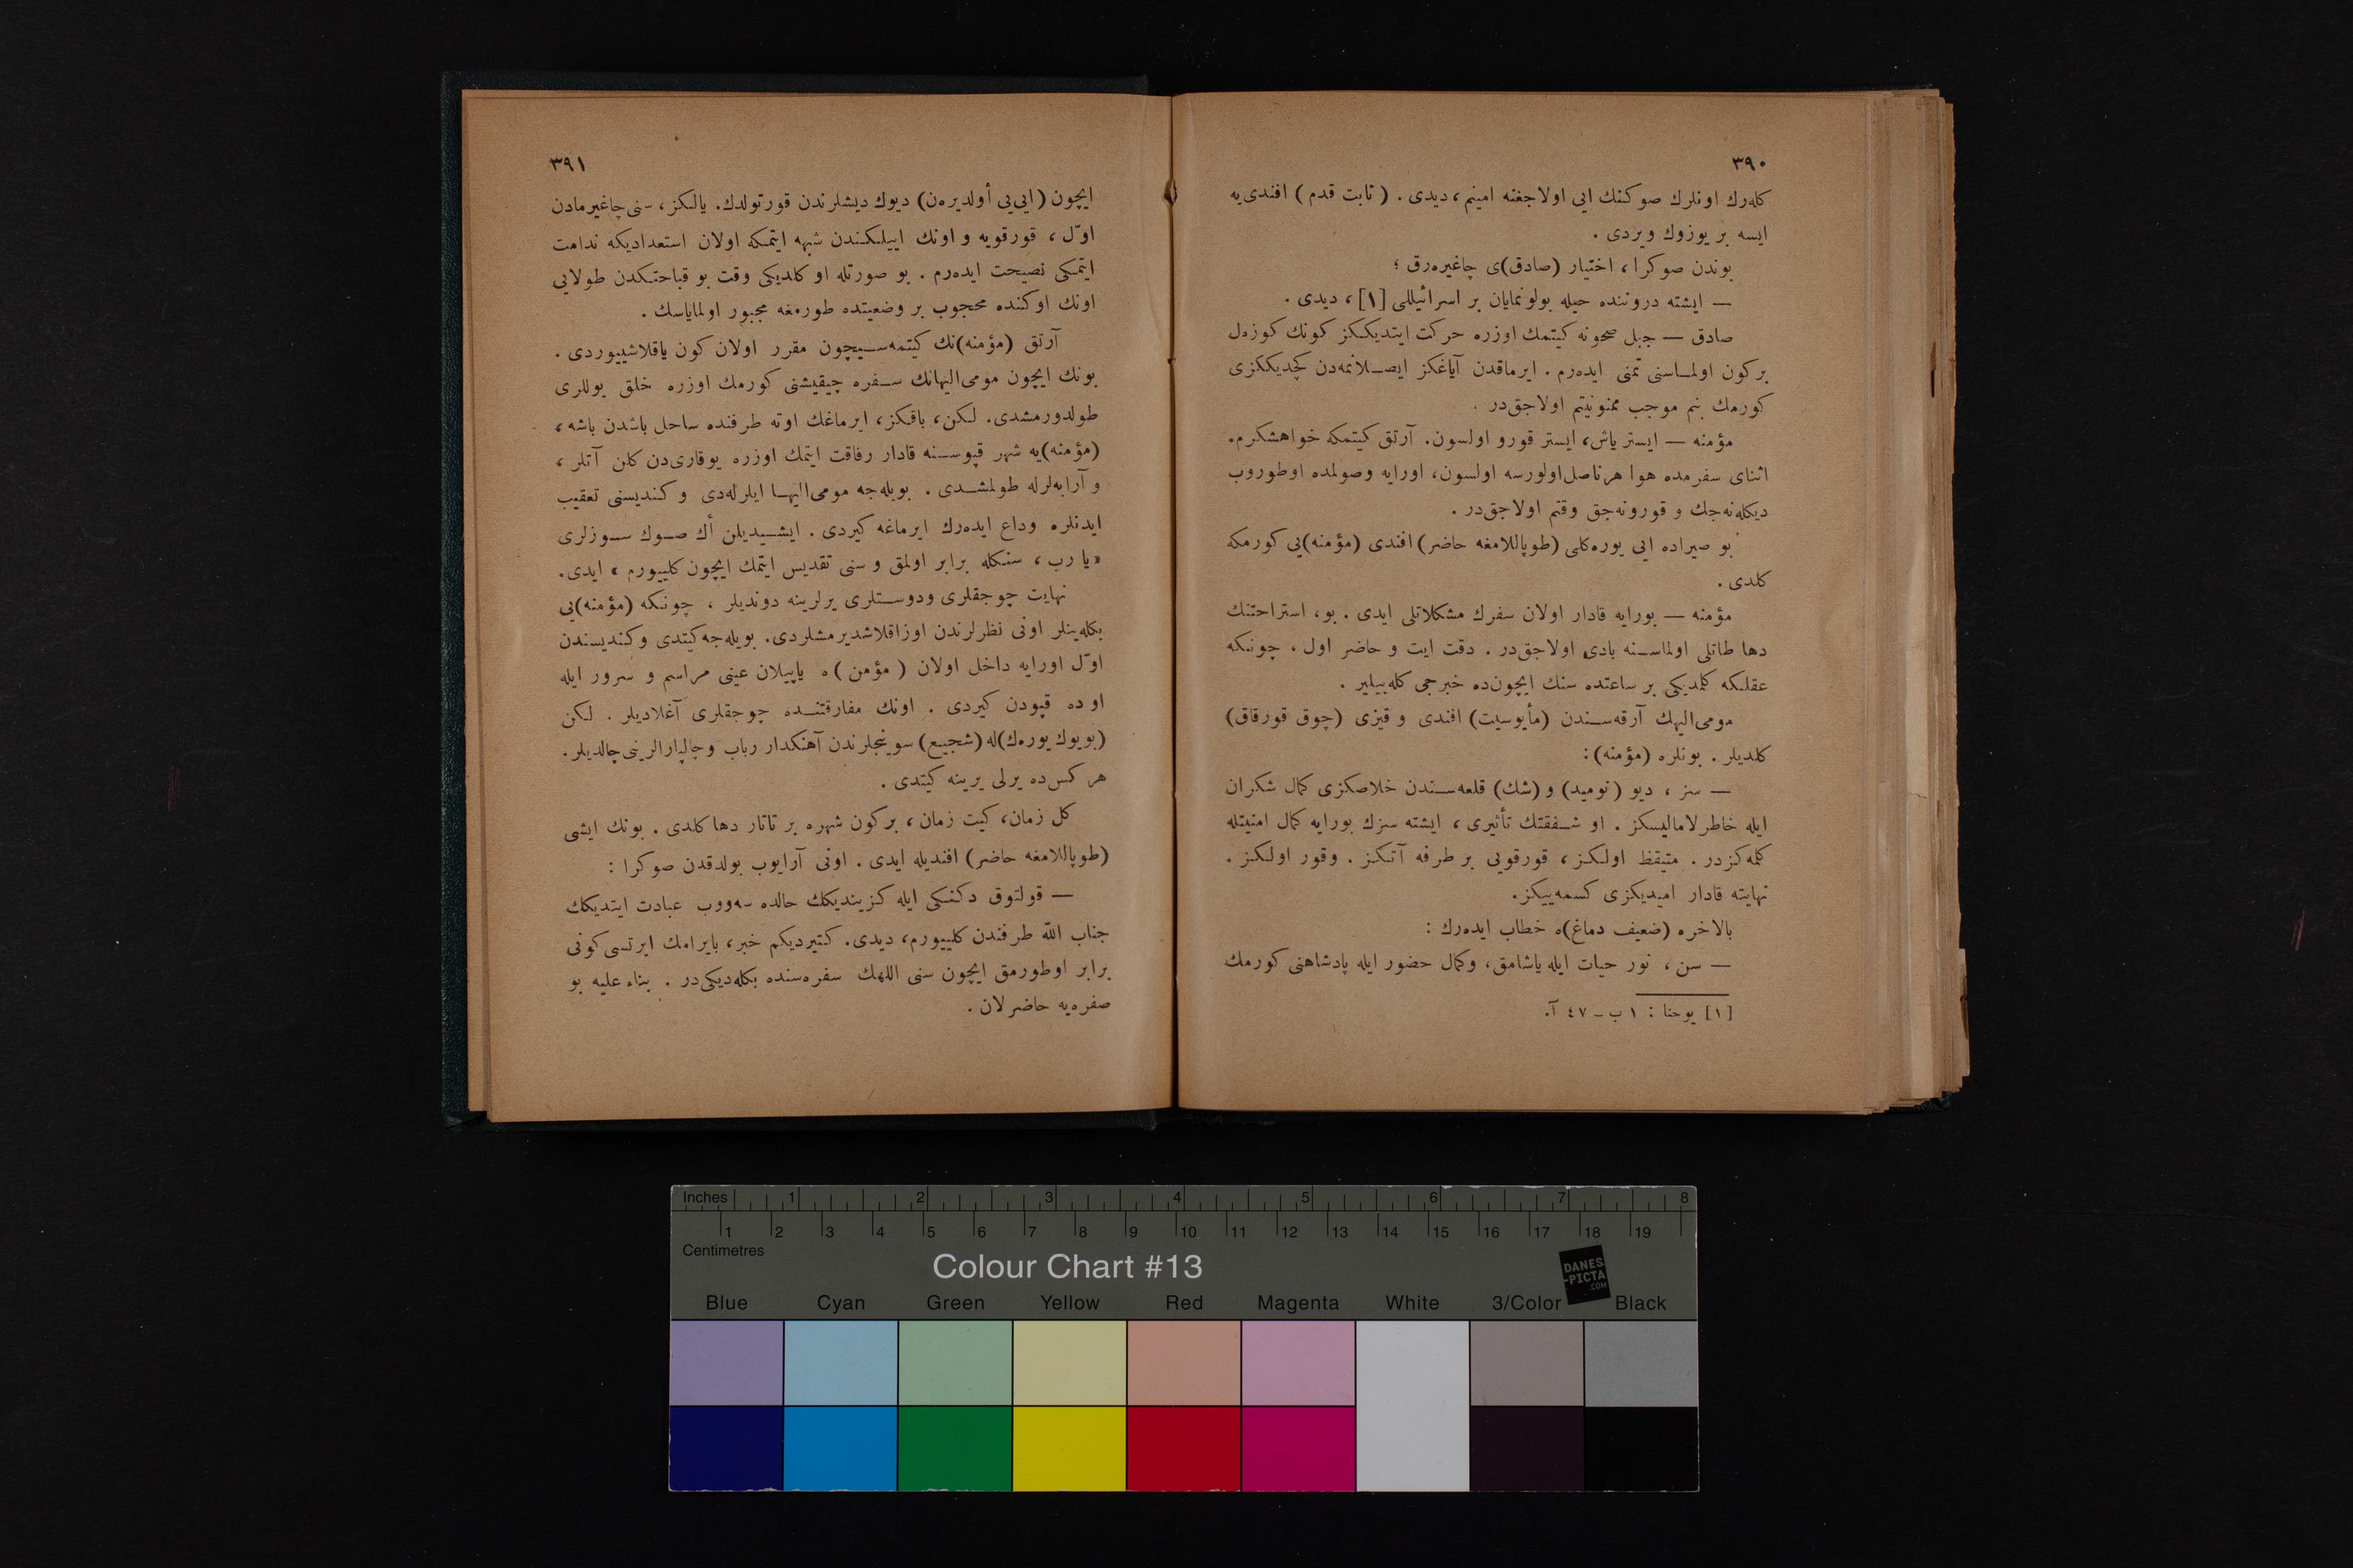 ٣٩٠
كله‌رك اونلرك صوكنك ايى اولاجغنه امينم، ديدى . ( ثابت قدم ) افندى‌يه
ايسه بر يوزوك ويردى .
بوندن صوكرا، اختيار (صادق)ى چاغيره‌رق ؛
— ايشته دروننده حيله بولونمايان بر اسرائيللى [١] ، ديدى .
صادق — جبل صحونه كيتمك اوزره حركت ايتديككز كونك كوزه‌ل
بركون اولماسنى تمنى ايده‌رم . ايرماقدن آياغكز ايصلانمه‌دن كچديككزى
كورمك بنم موجب ممنونيتم اولاجق‌در .
مؤمنه — ايستر ياش، ايستر قورو اولسون. آرتق كيتمكه خواهشكرم.
اثناى سفرمده هوا هرناصل‌اولورسه اولسون، اورايه وصولمده اوطوروب
ديكله‌نه‌جك و قورونه‌جق وقتم اولاجق‌در .
بو صيراده ايى يوره‌كلى (طوپاللامغه حاضر) افندى (مؤمنه)يى كورمكه
كلدى .
مؤمنه — بورايه قادار اولان سفرك مشكلاتلى ايدى . بو، استراحتنك
دها طاتلى اولماسنه بادى اولاجق‌در . دقت ايت و حاضر اول ، چونكه
عقلكه كلمديكى بر ساعتده سنك ايچون‌ده خبرجى كله‌بيلير .
مومى‌اليهك آرقه‌سندن (مأيوسيت) افندى و قيزى (چوق قورقاق)
كلديلر . بونلره (مؤمنه) :
— سز ، ديو (نوميد) و (شك) قلعه‌سندن خلاصكزى كمال شكران
ايله خاطرلاماليسكز . او شفقتك تأثيرى ، ايشته سزك بورايه كمال امنيتله
كلمه‌كزدر . متيقظ اولكز ، قورقويى بر طرفه آتكز . وقور اولكز .
نهايته قادار اميديكزى كسمه‌ييكز.
بالاخره (ضعيف دماغ)ه خطاب ايده‌رك :
— سن ، نور حيات ايله ياشامق، وكمال حضور ايله پادشاهنى كورمك
[١] يوحنا : ١ ب ـ ٤٧ آ.
٣٩١
ايچون (ايى‌يى أولديره‌ن) ديوك ديشلرندن قورتولدك. يالكز، سنى چاغيرمادن
اوّل ، قورقويه و اونك اييلكندن شبهه ايتمكه اولان استعداديكه ندامت
ايتمكى نصيحت ايده‌رم . بو صورتله او كلديكى وقت بو قباحتكدن طولايى
اونك اوكنده محجوب بر وضعيتده طورمغه مجبور اولماياسك .
آرتق (مؤمنه)نك كيتمه‌سيچون مقرر اولان كون ياقلاشييوردى .
بونك ايچون مومى‌اليهانك سفره چيقيشنى كورمك اوزره خلق يوللرى
طولدورمشدى. لكن، باقكز، ايرماغك اوته طرفنده ساحل باشدن باشه ،
(مؤمنه)يه شهر قپوسنه قادار رفاقت ايتمك اوزره يوقارى‌دن كلن آتلر ،
و آرابه‌لرله طولمشدى . بويله‌جه مومى‌اليها ايلرله‌دى و كنديسنى تعقيب
ايدنلره وداع ايده‌رك ايرماغه كيردى . ايشيديلن أك صوك سوزلرى
« يا رب ، سنكله برابر اولمق و سنى تقديس ايتمك ايچون كلييورم ، ايدى.
نهايت چوجقلرى ودوستلرى يرلرينه دونديلر ، چونكه (مؤمنه)يى
بكله‌ينلر اونى نظرلرندن اوزاقلاشديرمشلردى. بويله‌جه كيتدى وكنديسندن
اوّل اورايه داخل اولان ( مؤمن )ه ياپيلان عينى مراسم و سرور ايله
او ده قپودن كيردى . اونك مفارقتنده چوجقلرى آغلاديلر . لكن
(بويوك يوره‌ك)له (شجيع) سوينجلرندن آهنكدار رباب وچالپارالرينى چالديلر.
هر كس‌ده يرلى يرينه كيتدى .
كل زمان، كيت زمان ، بركون شهره بر تاتار دها كلدى . بونك ايشى
(طوپاللامغه حاضر) افنديله ايدى . اونى آرايوب بولدقدن صوكرا :
— قولتوق دكنكى ايله كزينديكك حالده سه‌ووب عبادت ايتديكك
جناب اللّه طرفندن كلييورم، ديدى. كتيرديكم خبر، بايرامك ايرتسى كونى
برابر اوطورمق ايچون سنى اللهك سفره‌سنده بكله‌ديكى‌در . بناء عليه بو
صفره‌يه حاضرلان .
Inches 1 2 3 4 5 6 7 8
1 2 3 4 5 6 7 8 9 10 11 12 13 14 15 16 17 18 19
Centimetres
Colour Chart #13
DANES
-PICTA
.COM
Blue Cyan Green Yellow Red Magenta White 3/Color Black